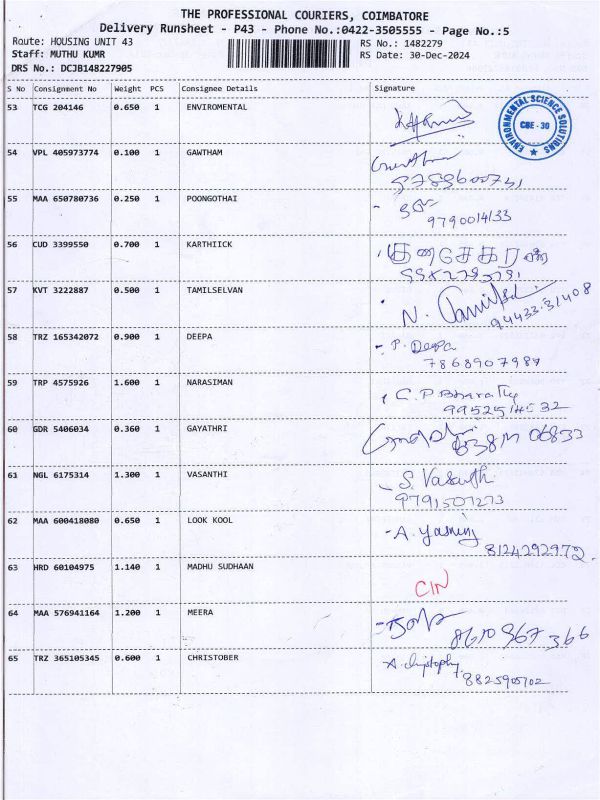 THE PROFESSIONAL COURIERS, COIMBATORE
Delivery Runsheet - P43 - Phone No.:0422-3505555 - Page No.:5
Route: HOUSING UNIT 43 RS No.: 1482279
Staff: MUTHU KUMR RS Date: 30-Dec-2024
DRS No.: DCJB148227905
S No Consignment No Weight PCS Consignee Details Signature
53 TCG 204146 0.650 1 ENVIROMENTAL
ENVIRONMENTAL SCIENCE SOLUTIONS CBE - 30
54 VPL 405973774 0.100 1 GAWTHAM
55 MAA 650780736 0.250 1 POONGOTHAI
9790014133
56 CUD 3399550 0.700 1 KARTHIICK
குணசேகரன்
57 KVT 3222887 0.500 1 TAMILSELVAN
N. Tamilsel
94433.31408
58 TRZ 165342072 0.900 1 DEEPA
P. Deepa
7868907987
59 TRP 4575926 1.600 1 NARASIMAN
C.P Bharathy
9952514532
60 GDR 5406034 0.360 1 GAYATHRI
06833
61 NGL 6175314 1.300 1 VASANTHI
S. Vasanthi
9791507273
62 MAA 600418080 0.650 1 LOOK KOOL
A. Yasmin
8124292972.
63 HRD 60104975 1.140 1 MADHU SUDHAAN
CIN
64 MAA 576941164 1.200 1 MEERA
8610967366
65 TRZ 365105345 0.600 1 CHRISTOBER
A. christophy
8825905702